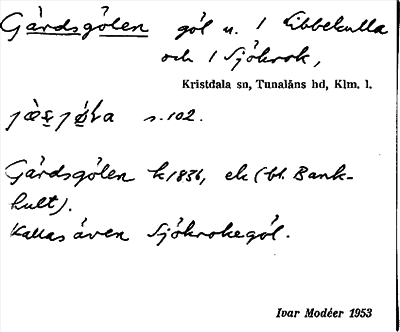 Gårdsgölen göl n. 1 Libbekulla
och 1 Sjökrok,
Kristdala sn, Tunaläns hd, Klm. l.
s. 102.
Gårdsgölen k 1836, ek (bl. Bank-
hult).
Kallas även Sjökrokegöl.
Ivar Modéer 1953